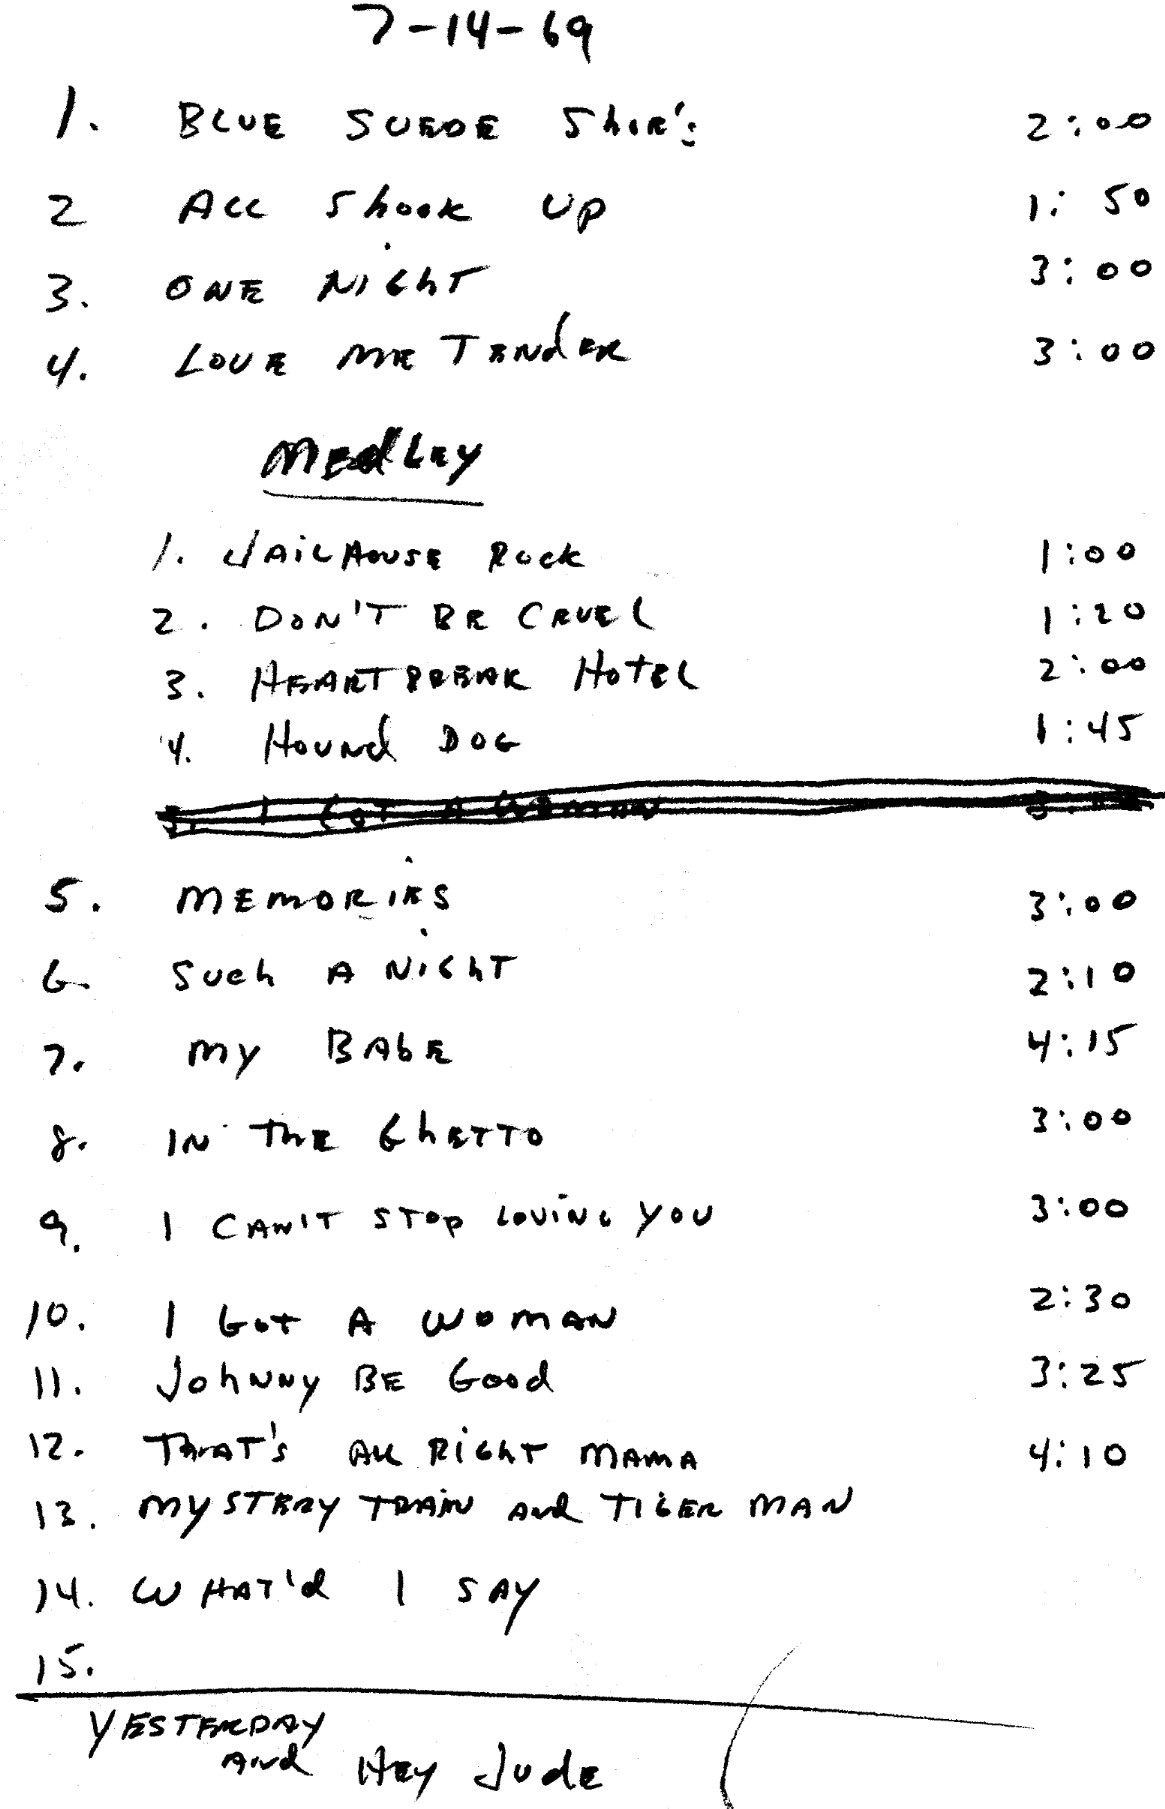 7-14-69
1. BLUE SUEDE Shoe's 2:00
2 ALL Shook Up 1:50
3. ONE NIGhT 3:00
4. LOVE ME TENdER 3:00
MEdLEy
1. JAiLHOUSE Rock 1:00
2. DON'T BE CRUEL 1:20
3. HEARTBREAK HOTEL 2:00
4. HOUNd DOG 1:45
5. I GOT A WOMAN
5. MEMORIES 3:00
6. Such A NIGhT 2:10
7. My BAbE 4:15
8. IN ThE GhETTO 3:00
9. I CAN'T STOp LOViNG YOU 3:00
10. I Got A WOMAN 2:30
11. JohNNy BE Good 3:25
12. ThAT'S ALL RiGhT MAMA 4:10
13. MYSTERY TRAiN ANd TIGER MAN
14. WHAT'd I SAY
15.
YESTERDAY
ANd HEY JudE